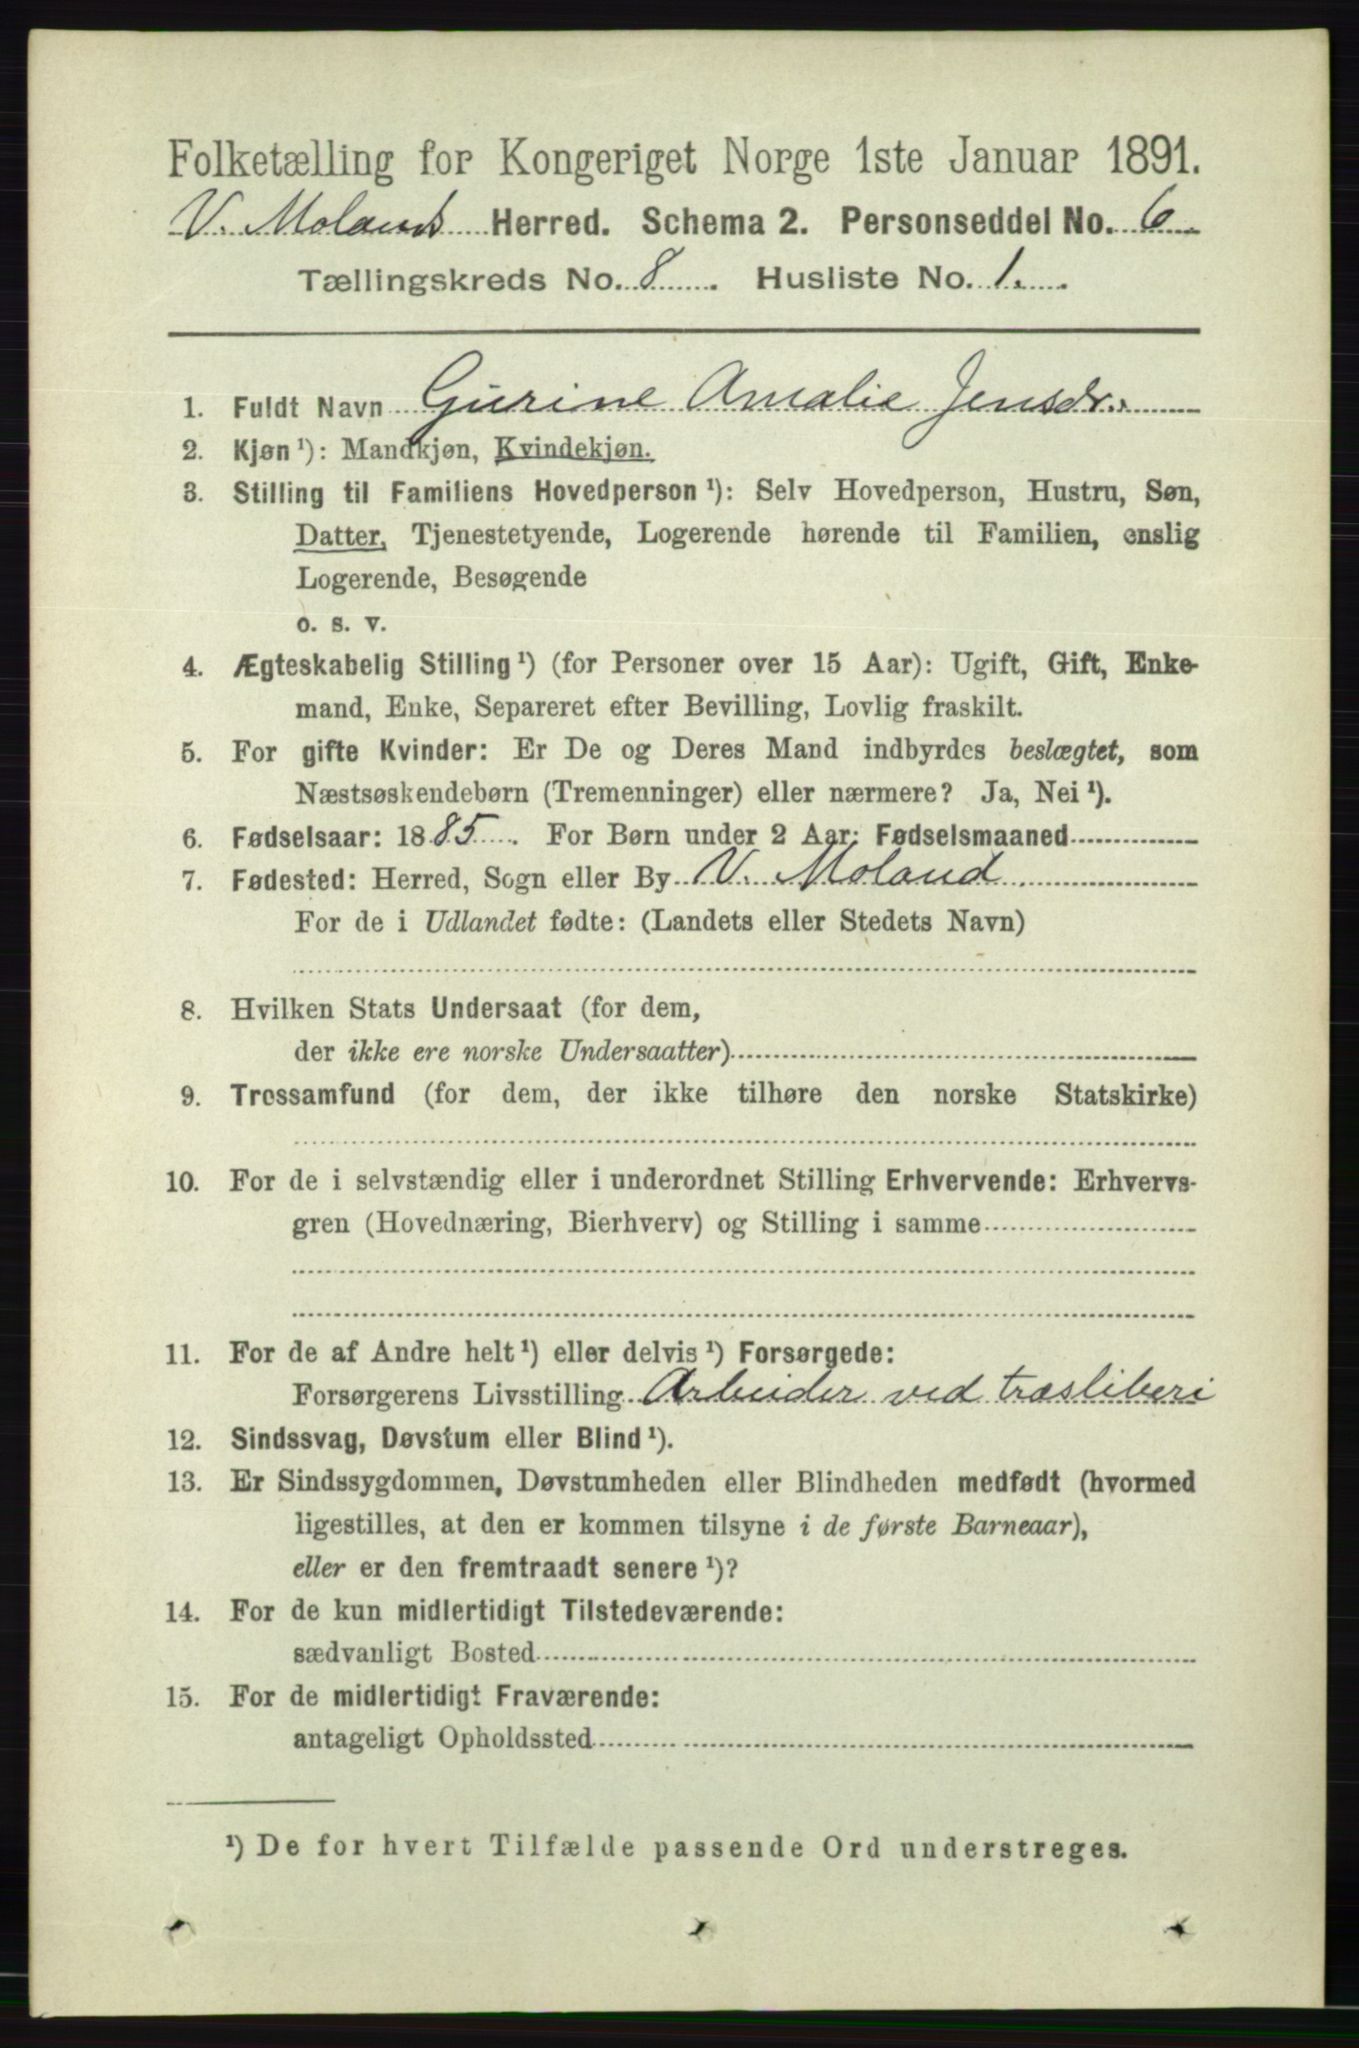 Folketælling for Kongeriget Norge 1ste Januar 1891.
V. Molands Herred. Schema 2. Personseddel No. 6
Tællingskreds No. 8. Husliste No. 1.
1. Fuldt Navn Gurine Amalie Jensdr.
2. Kjøn ¹): Mandkjøn, Kvindekjøn.
3. Stilling til Familiens Hovedperson ¹): Selv Hovedperson, Hustru, Søn,
Datter, Tjenestetyende, Logerende hørende til Familien, enslig
Logerende, Besøgende
o. s. v.
4. Ægteskabelig Stilling ¹) (for Personer over 15 Aar): Ugift, Gift, Enke-
mand, Enke, Separeret efter Bevilling, Lovlig fraskilt.
5. For gifte Kvinder: Er De og Deres Mand indbyrdes beslægtet, som
Næstsøskendebørn (Tremenninger) eller nærmere? Ja, Nei ¹).
6. Fødselsaar: 1885. For Børn under 2 Aar: Fødselsmaaned
7. Fødested: Herred, Sogn eller By V. Moland
For de i Udlandet fødte: (Landets eller Stedets Navn)
8. Hvilken Stats Undersaat (for dem,
der ikke ere norske Undersaatter)
9. Trossamfund (for dem, der ikke tilhøre den norske Statskirke)
10. For de i selvstændig eller i underordnet Stilling Erhvervende: Erhvervs-
gren (Hovednæring, Bierhverv) og Stilling i samme
11. For de af Andre helt ¹) eller delvis ¹) Forsørgede:
Forsørgerens Livsstilling Arbeider ved træsliberi
12. Sindssvag, Døvstum eller Blind ¹).
13. Er Sindssygdommen, Døvstumheden eller Blindheden medfødt (hvormed
ligestilles, at den er kommen tilsyne i de første Barneaar),
eller er den fremtraadt senere ¹)?
14. For de kun midlertidigt Tilstedeværende:
sædvanligt Bosted
15. For de midlertidigt Fraværende:
antageligt Opholdssted
¹) De for hvert Tilfælde passende Ord understreges.